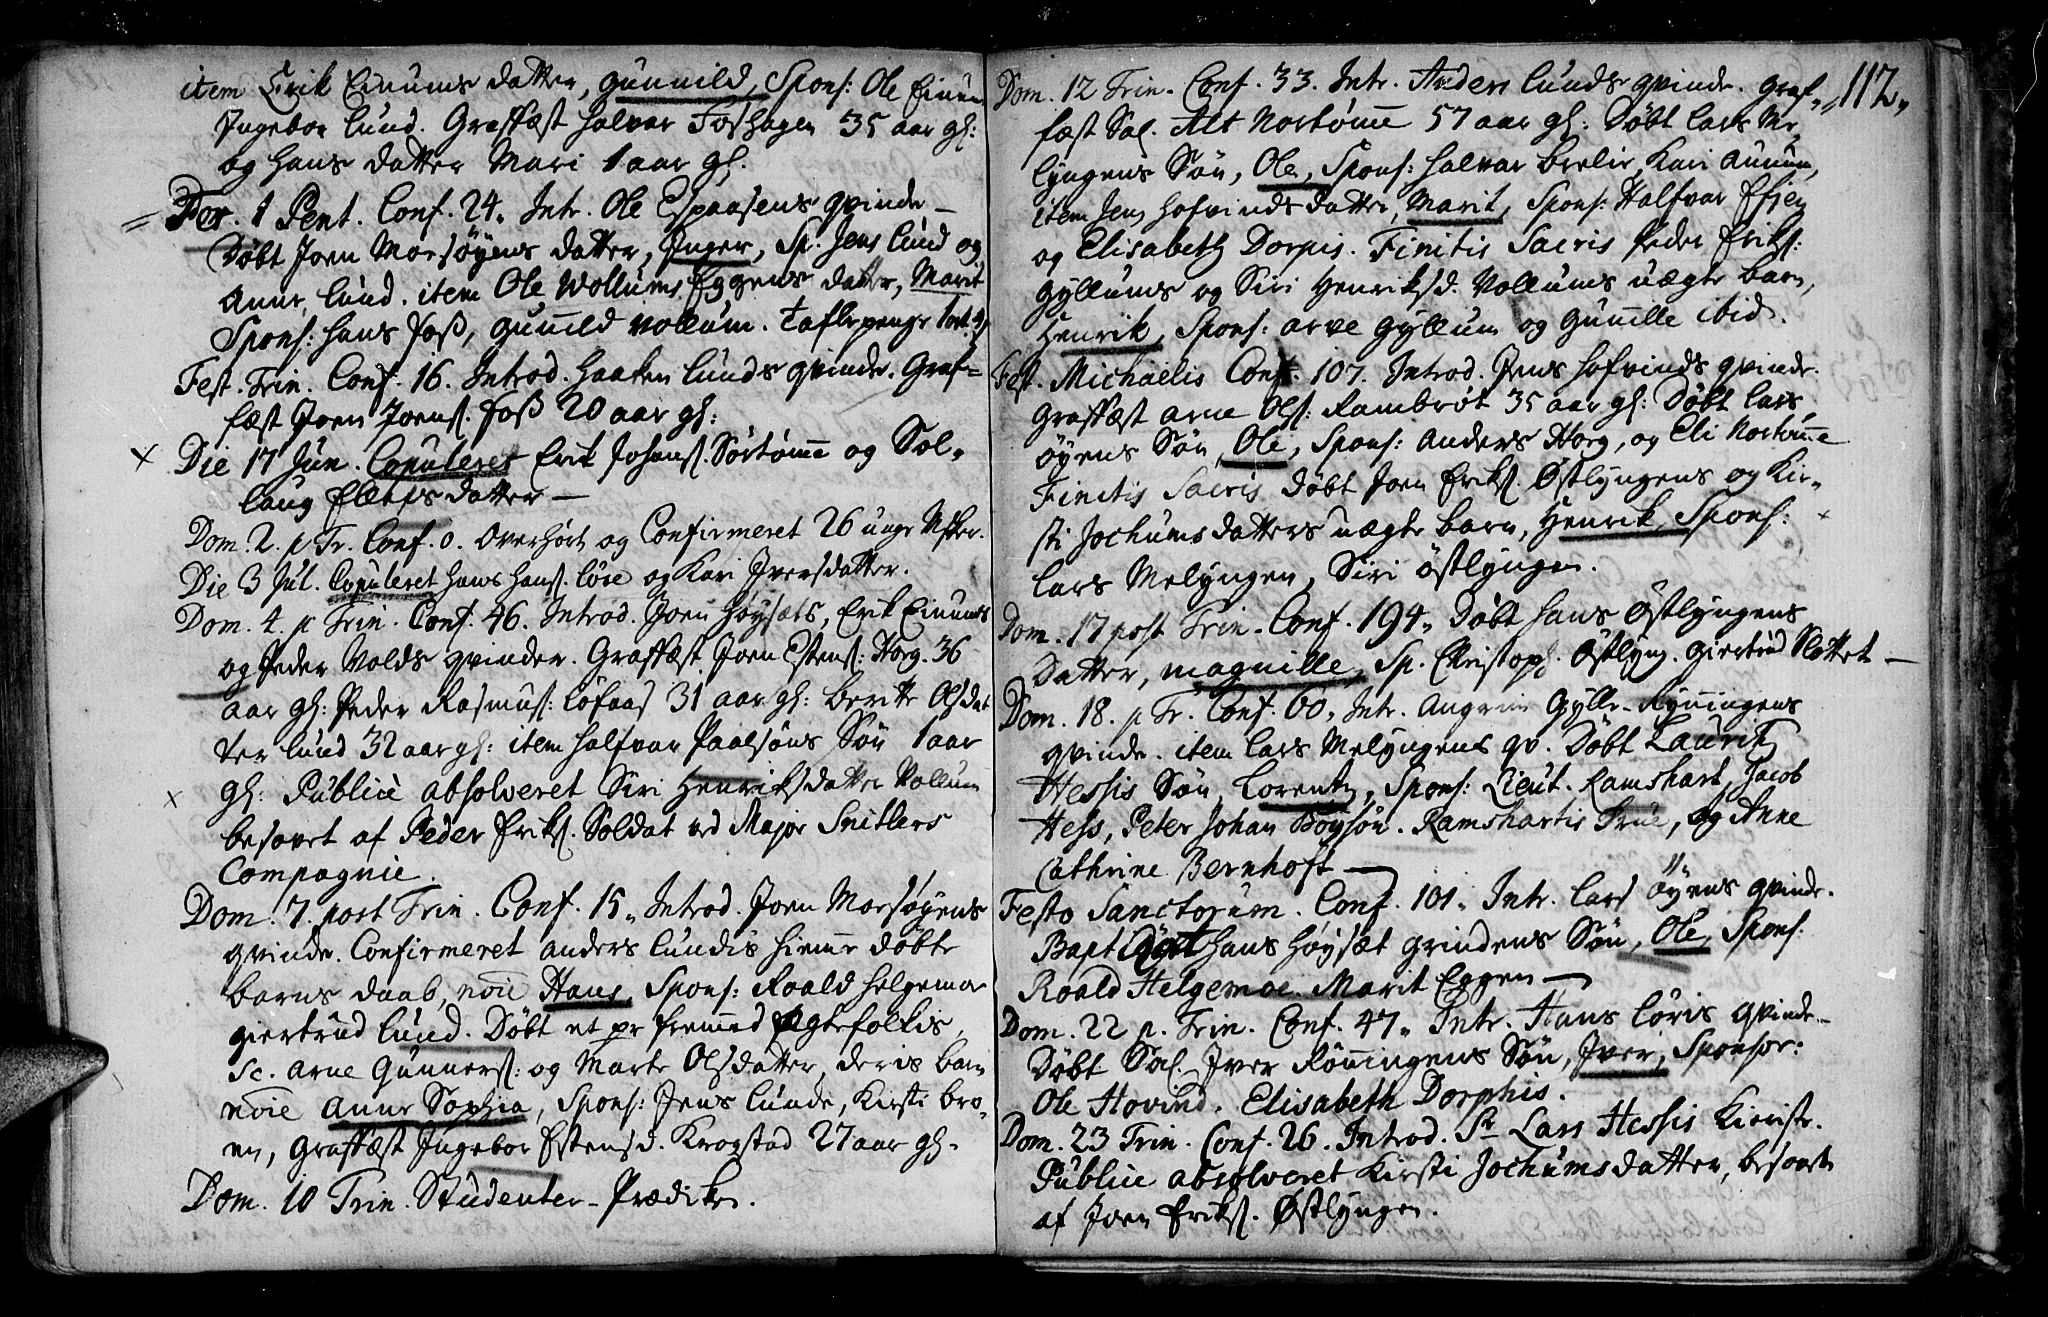 item Erik Einums datter, Gunnild, Spons: Ole Einum
Ingebor Lund. Graffæst Halvar Foshagen 35 aar gl:
og Hans datter Mari 1 aar gl.
Fer. 1 Pent. Conf. 24. Intr. Ole Espaasens qvinde
Døbt Joen Morsøyens datter, Inger, Sp. Jens Lund og
Anne Lund. item Ole Wollums Eggens datter, Marit
Spons: Hans Foss, Gunild Vollum. Taflepenge 1 ort
Fest. Trin. Conf. 16. Introd. Haaken Lunds qvinde. Graf=
fæst Joen Joens. Foss 20 aar gl:
Die 17 Jun. Copuleret Erik Johans. Sørtømme og Sol-
laug datter
Dom. 2. p Tr. Conf. 0. Overhørt og Confirmeret 26 unge
Die 3 Jul. Copuleret Hans Hans. Løre og Kari Iversdatter.
Dom. 4. p Trin. Conf. 46. Introd. Joen Høysæts, Erik Einums
og Peder Volds qvinder. Graffæst Joen Estens: Horg. 36
aar gl: Peder Rasmus: Løfaas 31 aar gl: Beritte Olsdat
ter Lund 32 aar gl: item Halfvar Paalsøns Søn 1 aar
gl: Publicè absolveret Siri Henriksdatter Vollum
besovet af Peder Eriks. Soldat ved Major Snitlers
Compagnie.
Dom. 7. post Trin. Conf. 15. Introd. Joen Morsøyens
qvinde. Confirmeret Anders Lundis hiemme døbte
barns daab, noie Hans, Spons: Roald Helgemoe
Giertrud Lund. Døbt et pr fremmed Egtefolkis,
Sc. Arne Gunners: og Marte Olsdatter, deris barn
noie Anne Sophia, Spons: Jens Lunde, Kirsti Bro-
en, Graffæst Ingebor Estensd. Krogstad 27 aar gl.
Dom. 10 Trin. Studenter-Prædiken.
112.
Dom. 12 Trin. Conf. 33. Intr. Anders Lunds qvinde. Graf-
fæst Sal. Alt Nortømme 57 aar gl: Døbt Lars Me-
lyngens Søn, Ole, Spons: Halvar Brelie, Kari
item Jens Hofvinds datter, Marit, Spons: Halfvar
og Elisabeth Dorpis. Finitis Sacris Peder Eriks:
Gyllums og Siri Henriksd. Vollums uægte barn,
Henrik, Spons: Arve Gyllum og Gunille ibid.
Fest. Michaelis Conf. 107. Introd. Jens Hofvinds qvinde.
Graffæst Arne Ols: Rambrøt 35 aar gl: Døbt Lars
Øyens Søn, Ole, Spons: Anders Horg, og Eli Nortømme
Finitis Sacris Døbt Joen Eriks. Østlyngens og Kir-
sti Jochumsdatters uægte barn, Henrik, Spons:
Lars Melyngen, Siri Östlyngen.
Dom. 17 post Trin. Conf. 194. Døbt Hans Østlyngens
Datter, Magnille, Sp. Christoph. Östlyng. Giertrud Slottet
Dom. 18. p Tr. Conf. 60. Intr. Gylle-Rynningens
qvinde. item Lars Melyngens qv. Døbt Lauritz
Hessis Søn, Lorentz, Spons: Lieut. Ramshart, Jacob
Hess, Peter Johan Boysøn. Ramshartis Frue, og Anne
Cathrine Bernhoft
Festo Sanctorum. Conf. 101. Intr. Lars Öyens qvinde.
Bapt Hans Høysæt Grindens Søn, Ole, Spons:
Roald Helgemoe Marit Eggen
Dom. 22 p. Trin. Conf. 47. Intr. Hans Løris qvinde
Døbt Sal. Iver Rønningens Søn, Iver, Sponsor:
Ole Hovind. Elisabeth Dorphis.
Dom. 23 Trin. Conf. 26. Introd. Sr Lars Hessis Kieriste.
Publicè absolveret Kirsti Jochumsdatter, besovet
af Joen Eriks. Østlyngen.